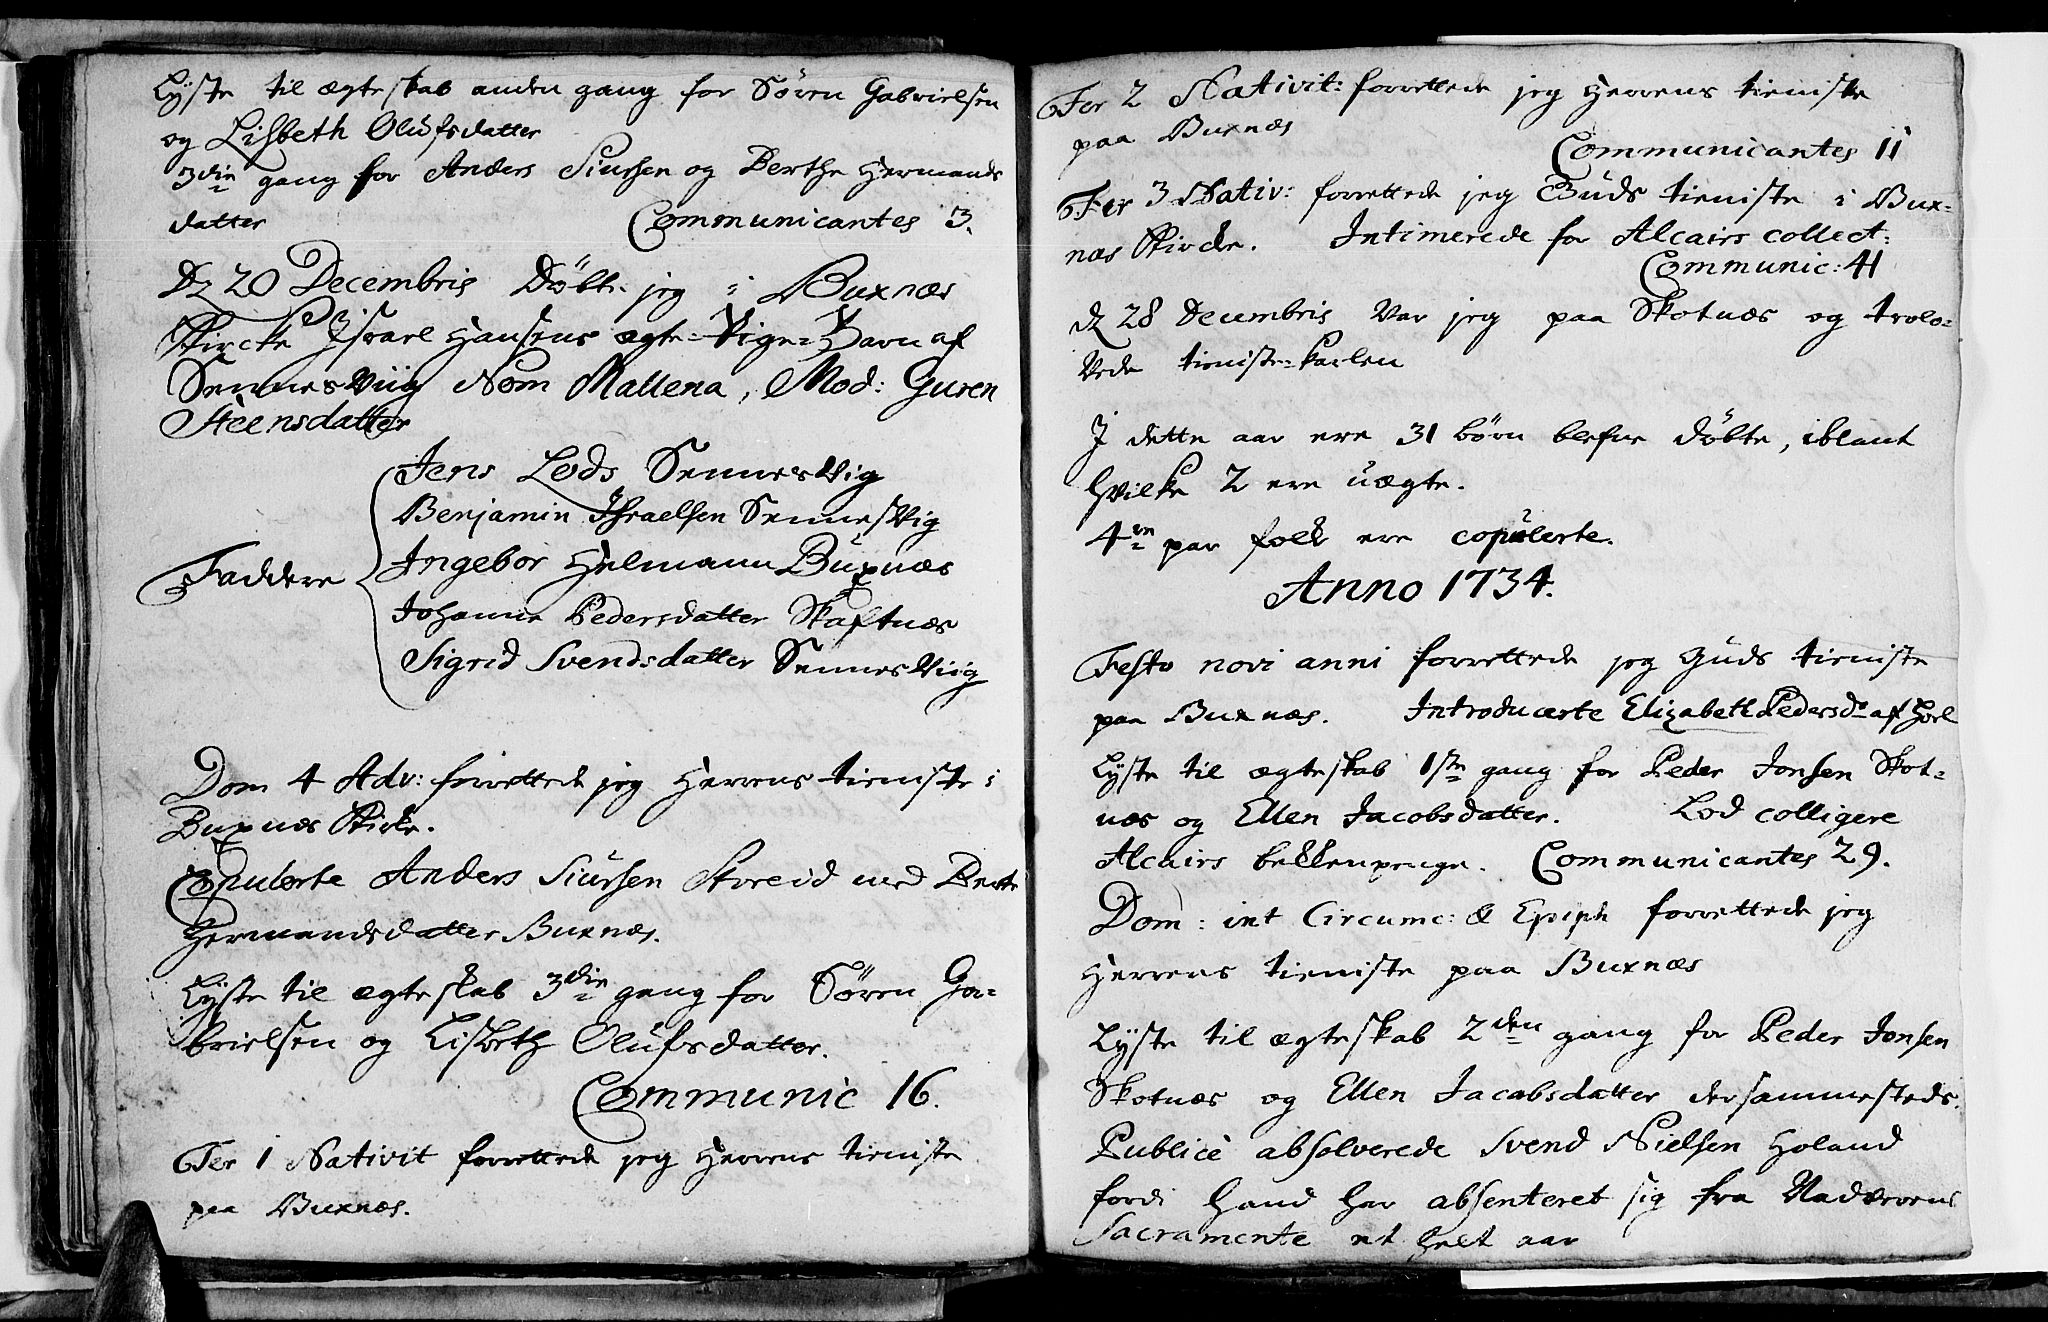 Lyste til ægteskab anden gang for Sören Gabrielsen
og Lisbeth Olüfsdatter
3die gang for Anders Siursen og Berthe Hermands
datter Communicantes 3.
D 20 Decembris Döbte jeg i Buxnæs
Kircke Israel Hansens ægte-Pige-Barn af
SennesViig Nom Mallena, Mod: Guren
Steensdatter
Jens Lods SennesVig
Benjamin Ihraelsen SennesVig
Faddere Ingebor Helmann Buxnæs
Johanne Pedersdatter Skaftnæs
Sigrid Svendsdatter SennesViig
Dom 4 Adv: forrettede jeg Herrens tieniste i
Buxnæs Kirke.
Copulerte Anders Siursen Storeid med Berte
Hermandsdatter Buxnæs.
Lyste til ægteskab 3die gang for Sören Ga-
brielsen og Lisbeth Olüfsdatter.
Communic 16.
Fer 1 Nativit forrettede jeg Herrens tieniste
paa Buxnæs.
Fer 2 Nativit: forrettede jeg Herrens tieniste
paa Buxnæs
Communicantes 11
Fer 3 Nativ: forrettede jeg Guds tieniste i Bux-
næs Kircke. Intimerede for Alcairs collect:
Communic: 41
D 28 Decembris Var jeg paa Skotnæs og trolo-
Vede tieniste-Karlen
I dette aar ere 31 börn blefne döbte, iblant
hvilke 2 ere uægte.
4re par folk ere copülerte.
Anno 1734.
Festo novi anni forrettede jeg Guds tieniste
paa Buxnæs. Introducerte Elizabeth Pedersdr af Hoel
Lyste til ægteskab 1ste gang for Peder Jonsen Skot-
næs og Ellen Jacobsdatter. Lod colligere
Alcairs bekkenpenge. Communicantes 29.
Dom: int Circumc: & Epiph forrettede jeg
Herrens tieniste paa Buxnæs
Lyste til ægteskab 2den gang for Peder Jonsen
Skotnæs og Ellen Jacobsdatter dersammesteds.
Publicè absolverede Svend Nielsen Holand
fordi hand har absenteret sig fra Nadverens
Sacramente et helt aar